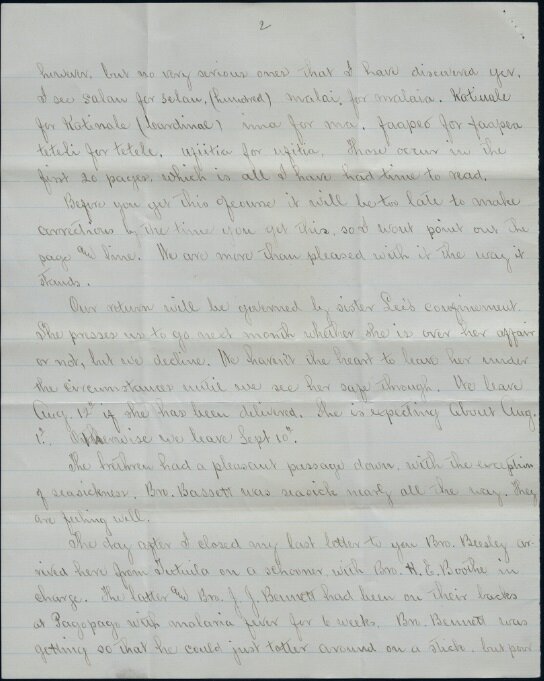 2
however, but no very serious ones that I have discovered yet.
I see salau for selau, (hundred) malai, for malaia. Katinale
for Katinale (Cardinal) ina for ma, faapeo for faapea
teteli for tetele. ufiitia for ufitia. Those occur in the
first 20 pages, which is all I have had time to read.
Before you get this of course it will be too late to make
corrections by the time you get this, so I wont point out the
page and line. We are more than pleased with it the way it
stands.
Our return will be governed by sister Lee's confinement.
She presses us to go next month whether she is over her affair
or not, but we decline. We haven't the heart to leave her under
the circumstances until we see her safe through. We leave
Aug. 12th if she has been delivered. She is expecting about Aug.
1st. Otherwise we leave Sept 10th.
The brethren had a pleasant passage down, with the exception
of seasickness. Bro. Bassett was seasick nearly all the way. They
are feeling well.
The day after I closed my last letter to you Bro. Beesley ar-
rived here from Tutuila on a schooner, with Bro. H. E. Boothe in
charge. The latter and Bro. J. J. Bennett had been on their backs
at Pagopago with malaria fever for 6 weeks. Bro. Bennett was
getting so that he could just totter around on a stick, but poor